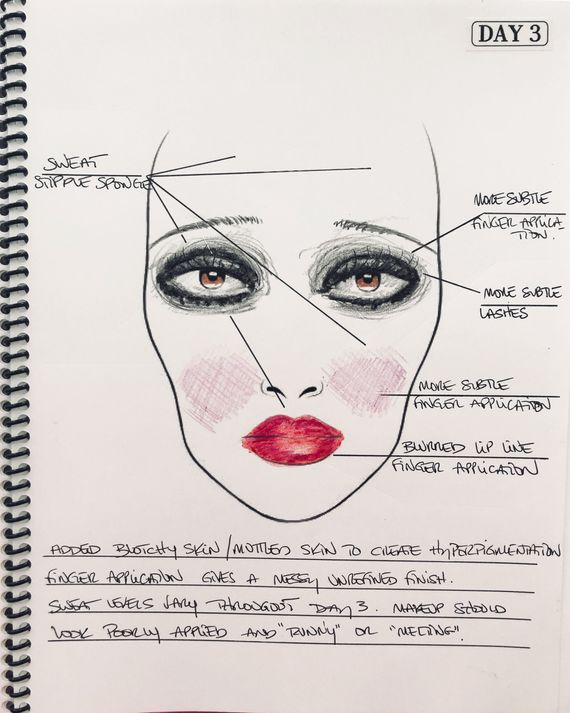 DAY 3
SWEAT
STIPPLE SPONGE
MORE SUBTLE
FINGER APPLICA-
TION.
MORE SUBTLE
LASHES
MORE SUBTLE
FINGER APPLICATION
BLURRED LIP LINE
FINGER APPLICATION
ADDED BLOTCHY SKIN/MOTTLED SKIN TO CREATE HYPERPIGMENTATION
FINGER APPLICATION GIVES A MESSY UNREFINED FINISH.
SWEAT LEVELS VARY THROUGOUT DAY 3. MAKEUP SHOULD
LOOK POORLY APPLIED AND "RUNNY" OR "MELTING".